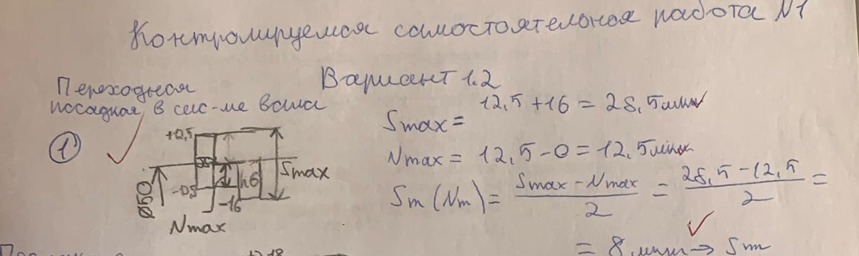 Контролируемая самостоятельная работа №1
Вариант 1.2
Переходная
посадка в сис-ме вала
1
+12,5
Ø50
h6
-16
Smax
Nmax
Smax = 12,5+16 = 28,5мкм
Nmax = 12,5-0 = 12,5мкм
Sm (Nm) = Smax - Nmax / 2 = 28,5-12,5 / 2 =
= 8мкм → Sm